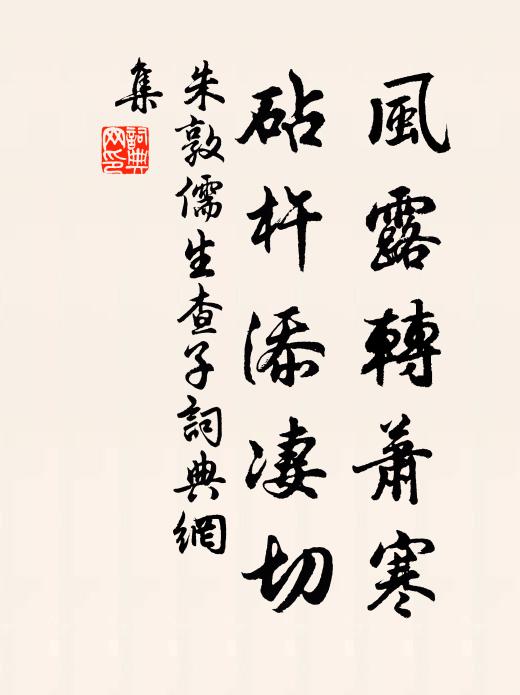 風露轉蕭寒
砧杵添凄切
朱敦儒生查子詞典網
集
詞典網印